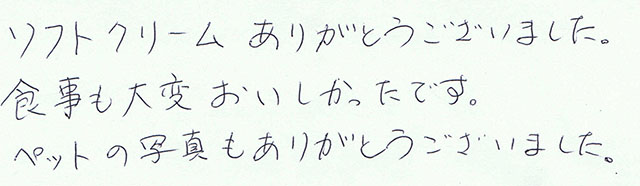 ソフトクリーム ありがとうございました。
食事も大変おいしかったです。
ペットの写真もありがとうございました。